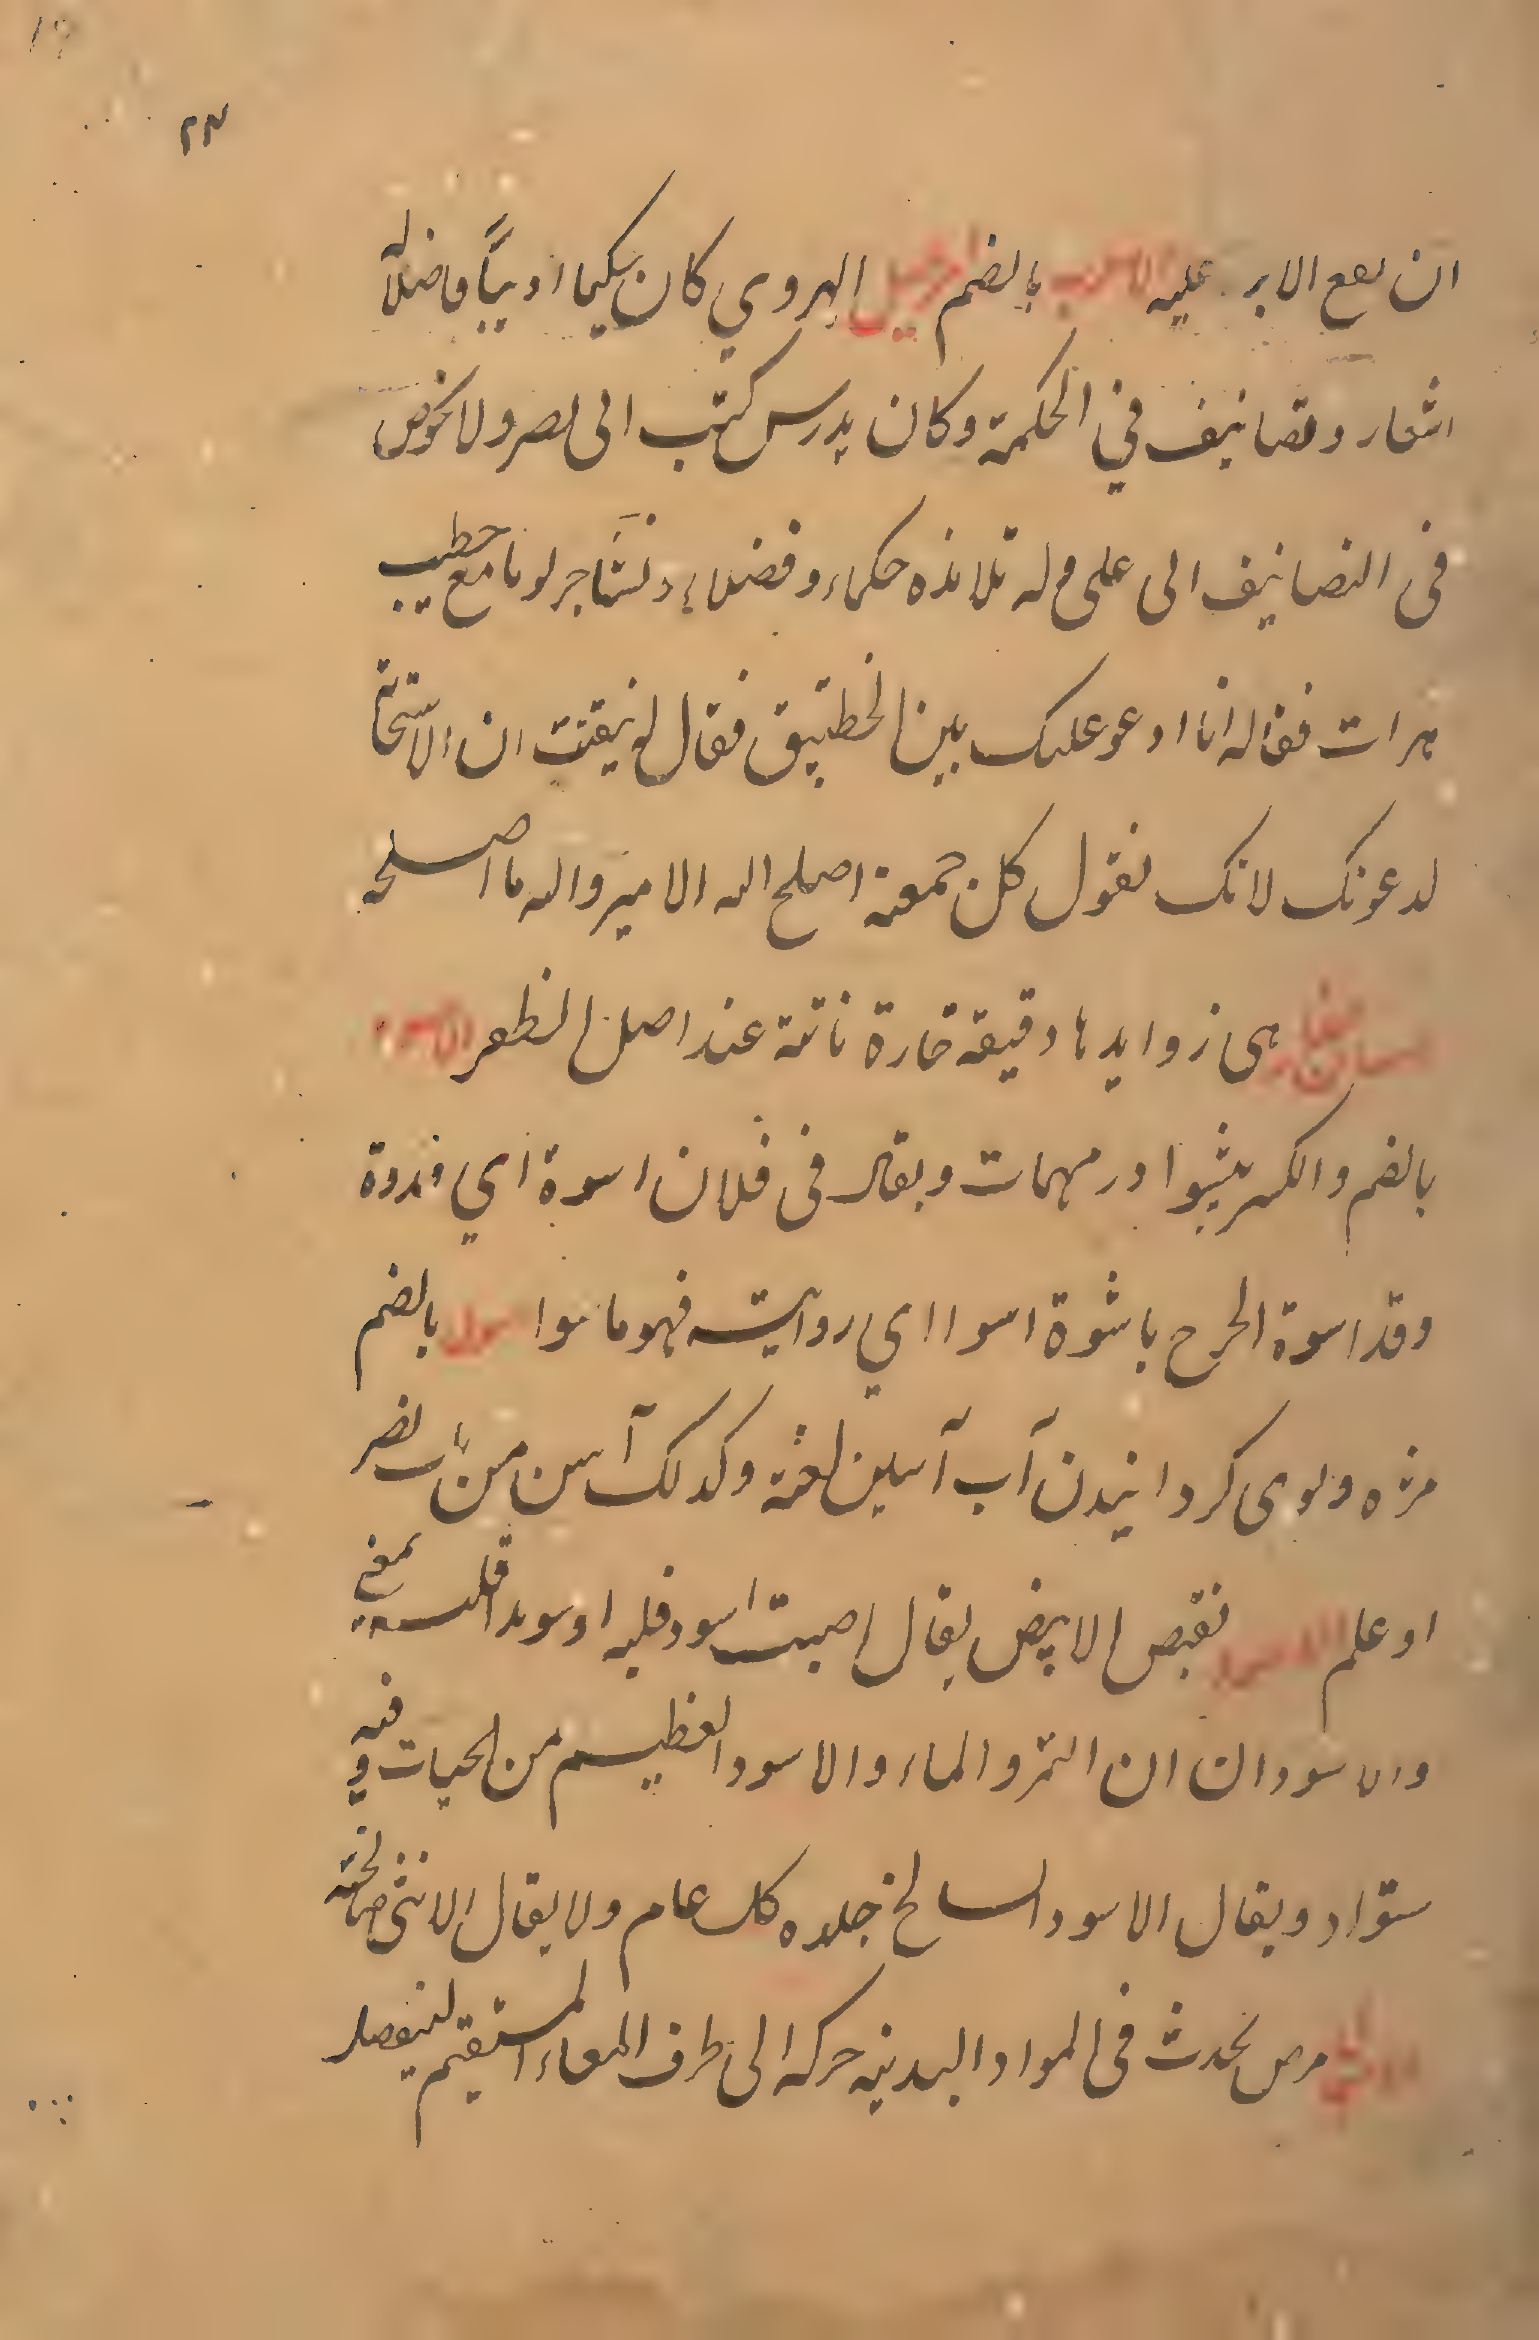 ۲۳
ان يقع الابر عليه الاسرب بالضم الهروي كان حكيما اديبًا فاضلا له
اشعار وتصانيف في الحكمة وكان يدرس كتب ابى نصر ولا يخوض
فى التصانيف ابى على وله تلامذه حكماء وفضلاء وتشاجر يوما مع خطيب
هرات فقال له انا ادعو عليك بين الخطبتين فقال له تيقنت ان لا استجابة
لدعوتك لانك تقول كل جمعة اصلح الله الامير والله ما اصلحه
هى زوايدها دقيقة حارة ناتئة عند اصل الظفر
بالضم والكسر پيشوا در مهمات ويقال فى فلان اسوة اي قدوة
وقد اسوة الجرح باسوة اسوا اي دوايته فهو ماسوا بالضم
مزه وبوى كردانيدن آب آسين لغة وكذلك آسن من باب نصر
او علم الاسود نقيض الابيض يقال اصبت اسود قلبه او سويداء قلبه بمعنى
والاسودان ان التمر والماء والاسود العظيم من الحيات وفيه
سواد ويقال الاسود السالخ جلده كل عام ولا يقال الانثى سالخة
مرض يحدث فى المواد البدنيه حركه الى طرف المعاء المستقيم لينفصل